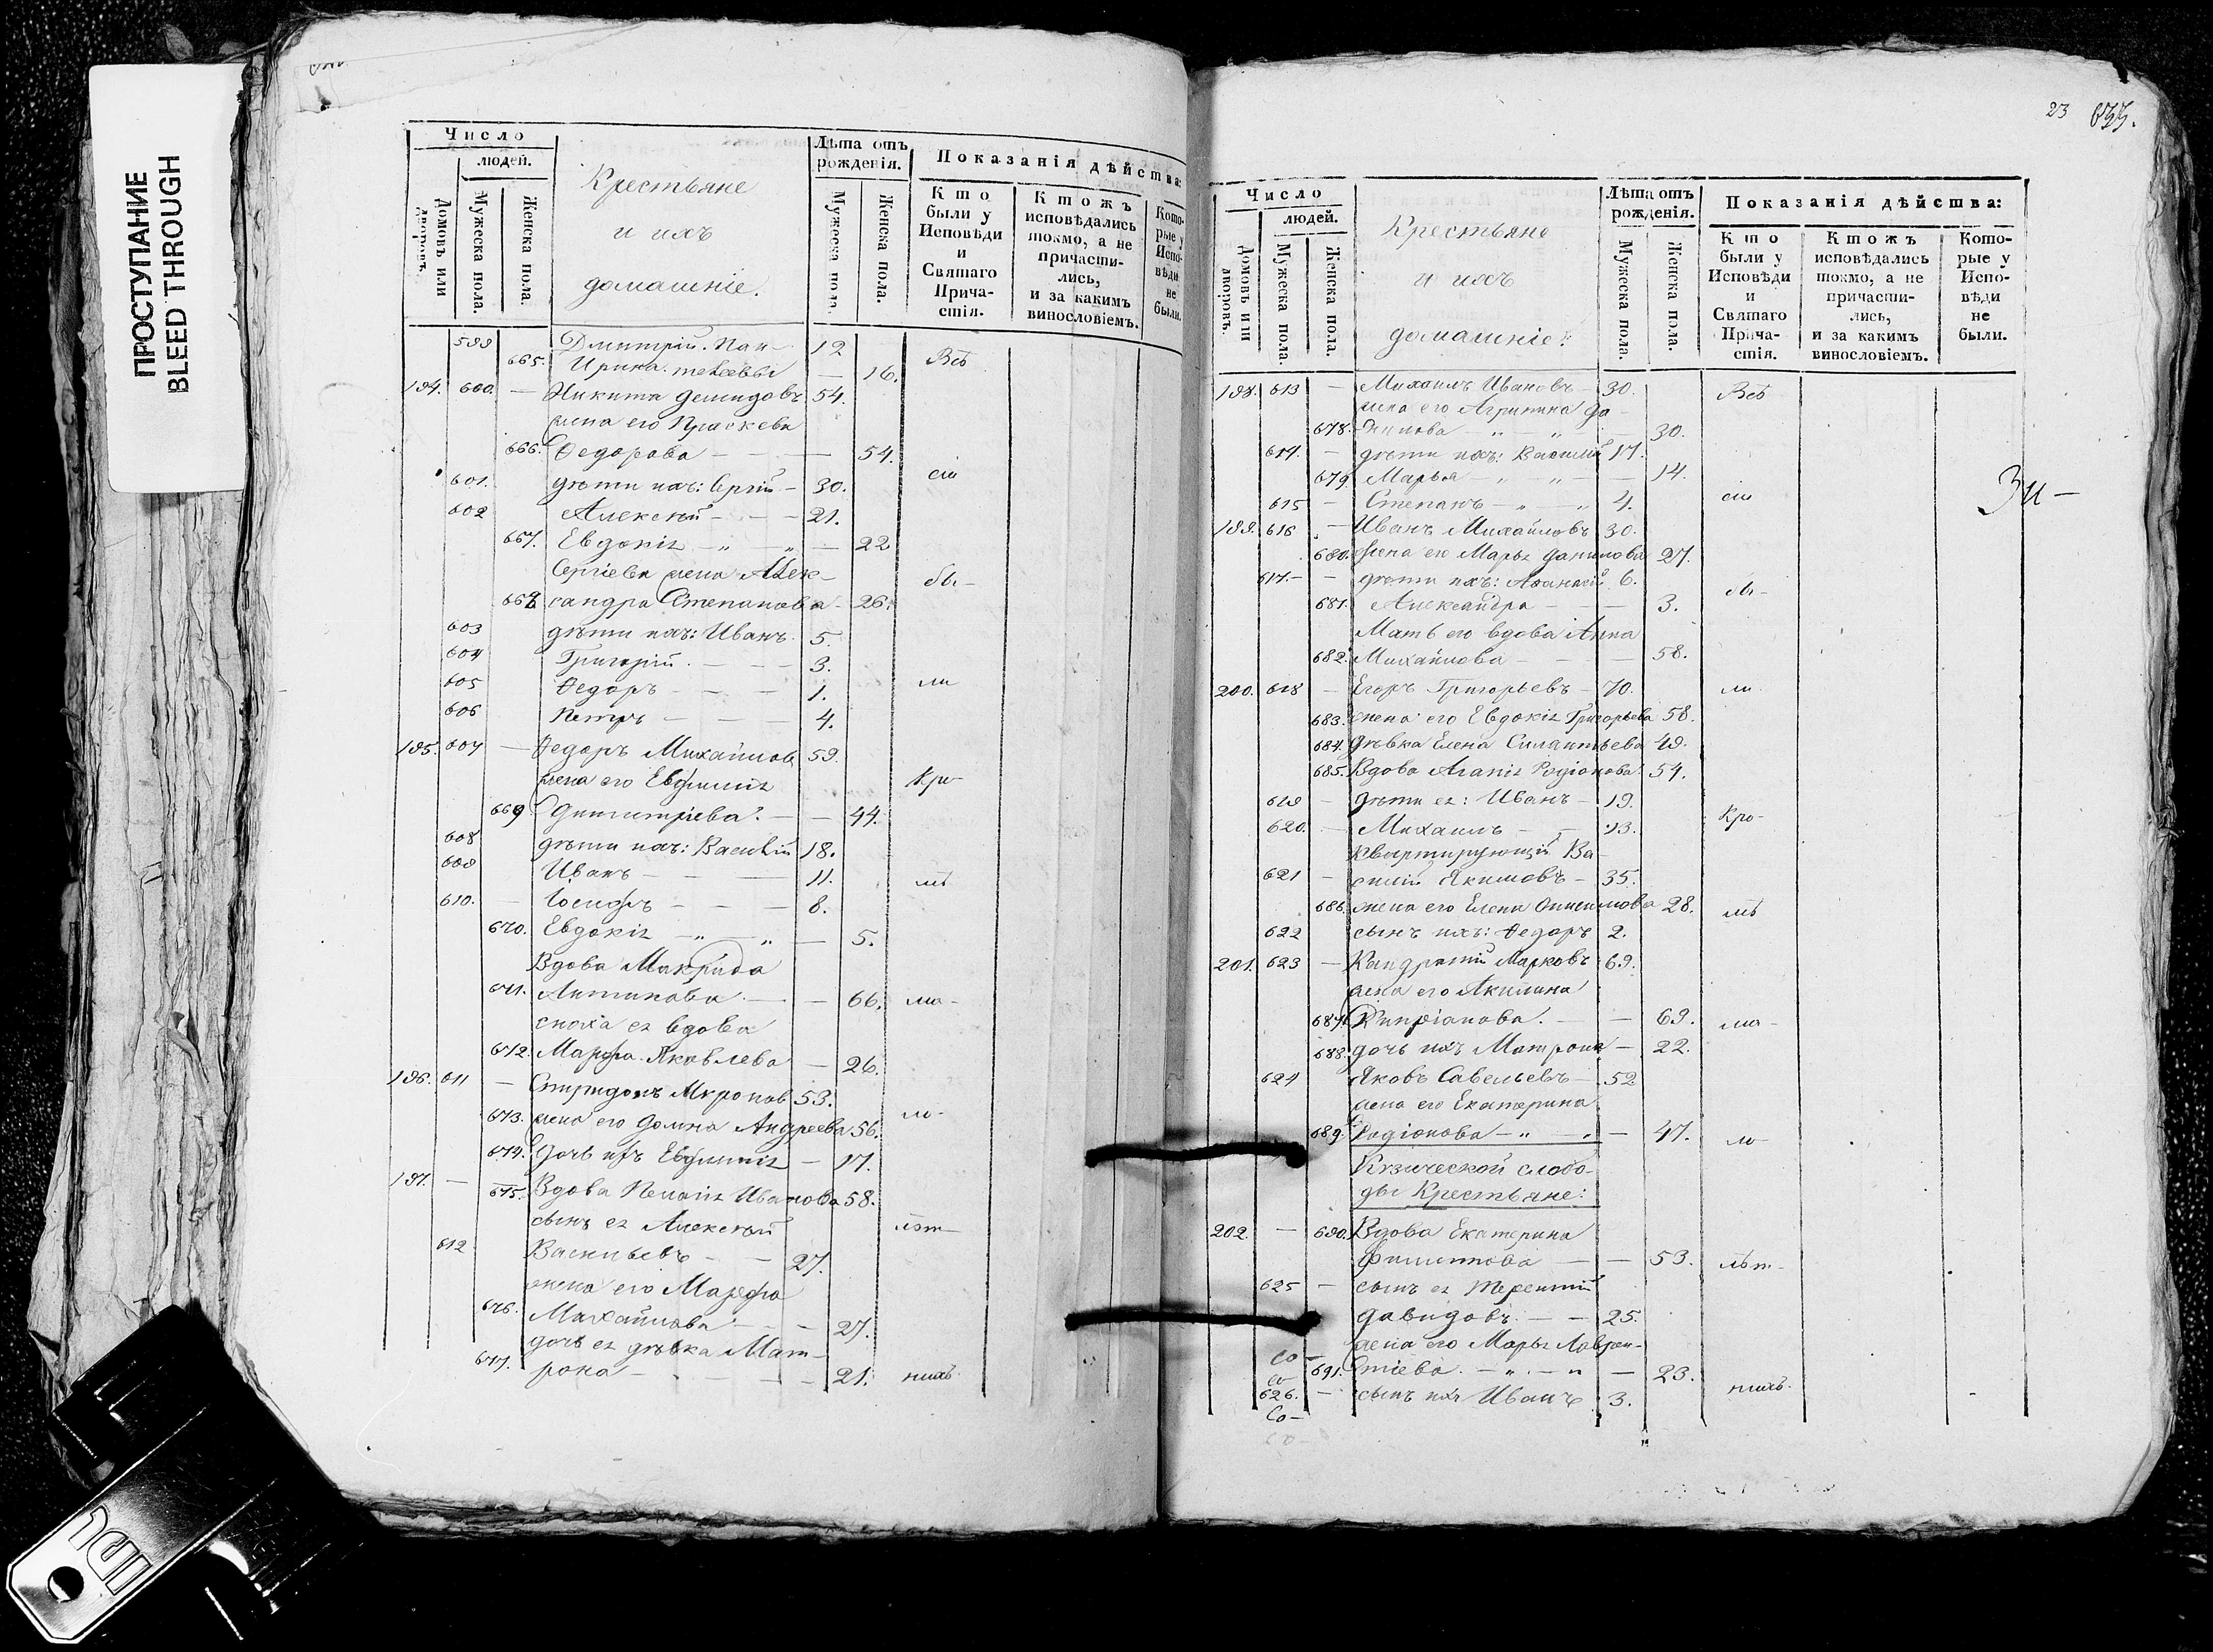 ПРОСТУПАНИЕ
BLEED THROUGH
Число
людей.
Домовъ или дворовъ.
Мужеска пола.
Женска пола.
Крестьяне
и ихъ
домашніе.
Лѣта отъ рожденія.
Мужеска пола.
Женска пола.
Показанія дѣйства:
Кто были у Исповѣди и Святаго Прича-стія.
Ктожъ исповѣдались токмо, а не причасти-лись, и за какимъ винословіемъ.
Кото-рые у Испо-вѣди не были.
599 Дмитрій. Пан- 12 Всѣ
665. Ирина. телеевы — 16.
194. 600. — Никита Демидовъ 54.
жена его Праскева
666. Федорова — — — 54.
601. дѣти ихъ: Сергій — 30. сіи
602 Алексѣй — — — 21.
667. Евдокія — „ — „ — 22
Сергіева жена Алек- бы-
668 сандра Степанова — 26.
603 дѣти ихъ: Иванъ 5.
604 Григорій. — — — 3.
605 Федоръ — — — 1. ли
606 Петръ — — — 4.
195. 607 — Федоръ Михайлов 59.
жена его Евфимія Кро-
669 Димитріева. — — 44.
608 дѣти ихъ: Василій 18.
609 Иванъ — — — 11. мѣ
610. — Іосифъ — — — 8.
670. Евдокія — „ — „ — 5.
Вдова Макрида
671. Антипова — — 66. ма-
сноха ея вдова
672. Марфа Яковлева — 26.
196. 611 — Спиридонъ Миронов 53.
673. жена его Домна Андреева 56. ло-
674. Дочь ихъ Евфимія — 17.
197. — 675. Вдова Пелагія Иванова 58.
сынъ ея Алексѣй лѣт-
612 Васильевъ — — 27.
жена его Марфа
676. Михайлова — — 27.
дочь ея дѣвка Мат-
677. рона — — — — 21. нихъ.
23
Число
людей.
Домовъ или дворовъ.
Мужеска пола.
Женска пола.
Крестьяне
и ихъ
домашніе:
Лѣта отъ рожденія.
Мужеска пола.
Женска пола.
Показанія дѣйства:
Кто были у Исповѣди и Святаго Прича-стія.
Ктожъ исповѣдались токмо, а не причасти-лись, и за какимъ винословіемъ.
Кото-рые у Испо-вѣди не были.
198. 613 — Михаилъ Ивановъ — 30. Всѣ
жена его Агрипина Да-
678. нилова — „ — „ — 30.
614. — дѣти ихъ: Василій 17.
679. Марья — „ — „ — — 14.
615 — Степанъ — „ — „ 4. сіи
199. 616 — Иванъ Михайловъ 30.
680. жена его Марья Данилова 27.
617. — — дѣти ихъ: Афанасій 6. бы-
681. Александра — — — 3.
Мать его вдова Анна
682. Михайлова — — — 58.
200. 618 — Егоръ Григорьевъ — 70. ли
683. жена его Евдокія Григорьева 58.
684. Дѣвка Елена Силантьева 49.
685. Вдова Агапія Родіонова 54.
619 — дѣти ея: Иванъ — 19.
620. — Михаилъ — — 13. Кро-
Квартирующій Ва-
621 — силій Якимовъ — 35.
686. жена его Елена Онисимова 28. мѣ
622 сынъ ихъ: Федоръ 2.
201. 623 — Кандратій Марковъ 69.
жена его Акилина
687. Кипріанова. — — 69. ма-
688. дочь ихъ Матрона — 22.
624 Яковъ Савельевъ — 52
жена его Екатерина
689. Родіонова — „ — „ — 47. ло-
Кизической слобо-
ды Крестьяне:
202. — 690. Вдова Екатерина
Филиппова — — 53. лѣт-
625 — сынъ ея Терентій
Давидовъ. — — 25.
жена его Марья Лаврен-
691. тіева. — „ — „ — 23.
626. — сынъ ихъ Иванъ 3. нихъ.
Со-